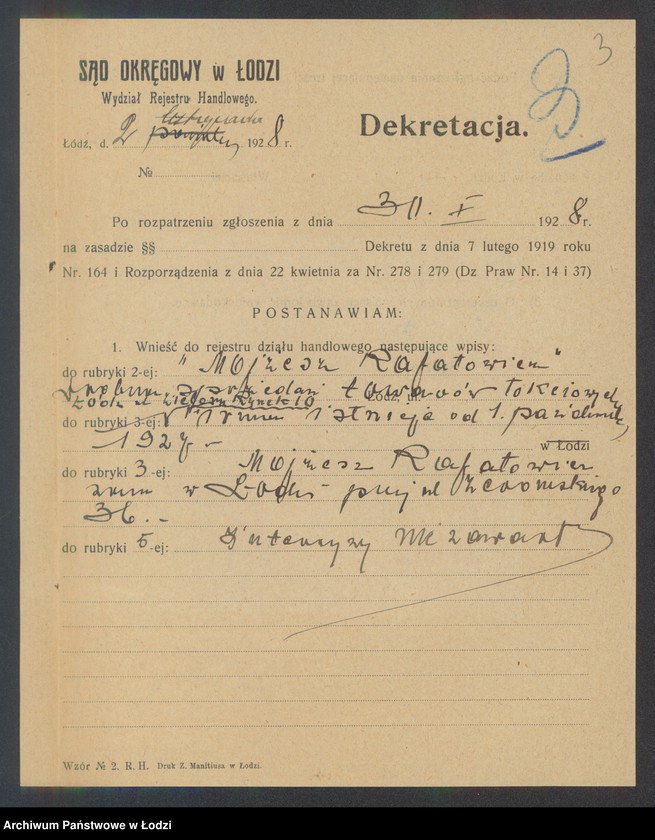 3
SĄD OKRĘGOWY w ŁODZI
Wydział Rejestru Handlowego.
listopada
Łódź, d. 2 1928 r.
Dekretacja.
№
Po rozpatrzeniu zgłoszenia z dnia 30. X 1928 r.
na zasadzie §§ Dekretu z dnia 7 lutego 1919 roku
Nr. 164 i Rozporządzenia z dnia 22 kwietnia za Nr. 278 i 279 (Dz. Praw Nr. 14 i 37)
POSTANAWIAM:
1. Wnieść do rejestru działu handlowego następujące wpisy:
do rubryki 2-ej: "Mojżesz Rafałowicz"
sprzedaż towarów łokciowych,
Łódź, Zielony Rynek 10 Łódź, ul.
do rubryki 3-ej: Firma istnieje od 1. października
1927 –
w Łodzi
do rubryki 3-ej: Mojżesz Rafałowicz
zam w Łodzi przy ul Żeromskiego
36. –
do rubryki 5-ej: Intercyzy nie zawarł
Wzór № 2. R. H. Druk Z. Manitiusa w Łodzi.
Archiwum Państwowe w Łodzi